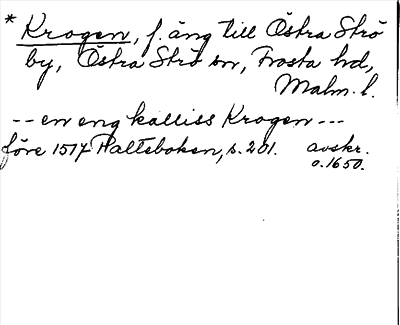 * Krogen, f. äng till Östra Strö
by, Östra Strö sn, Frosta hd,
Malm. l.
-- en eng kalliss Krogen ---
före 1517 Paltsboken, s. 201. avskr.
o. 1650.